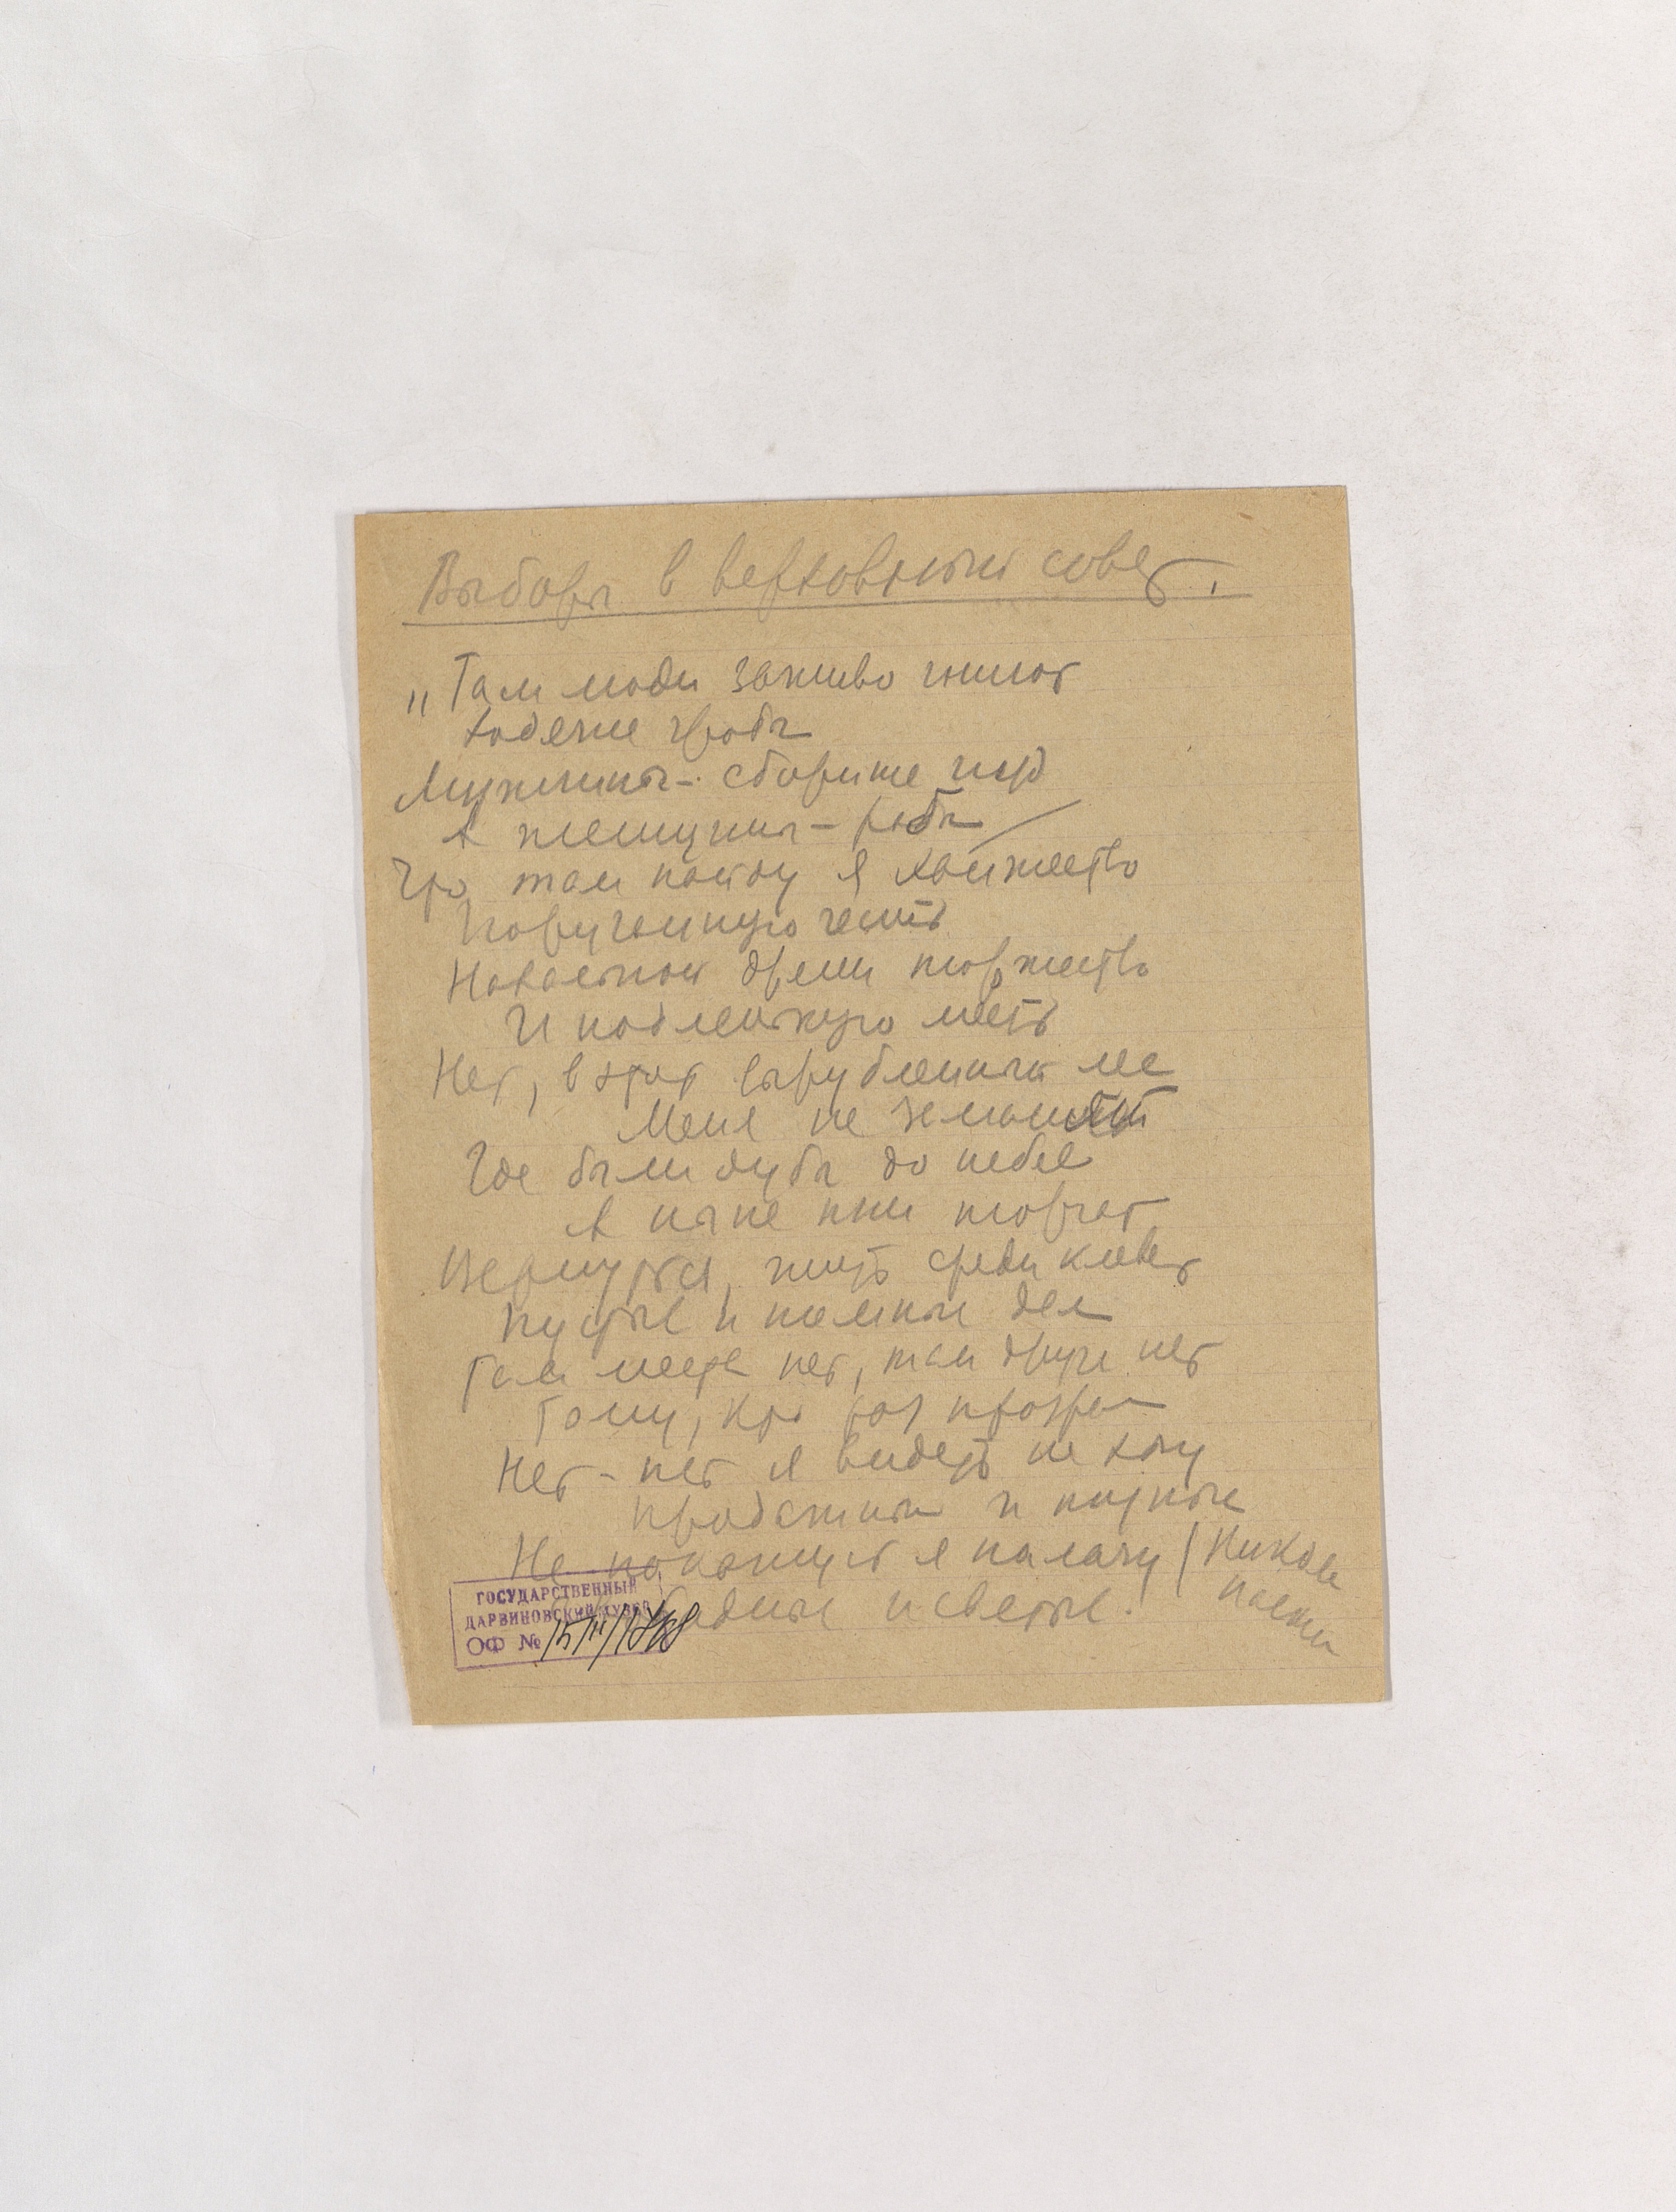 Выборы в верховный совет.
„Там люди заживо гниют
ходячие гробы
Мужчины – сборище иуд
А женщины – рабы
Что там найду я ханжество
Поруганную честь
Нахальной дряни торжество
И подленькую месть
Нет, в этот вырубленный лес
Меня не заманят
Где были дубы до небес
А ныне пни торчат
Вернуться, жить среди клевет
Пустых и темных дел
Там места нет, там друга нет
Тому, кто раз прозрел
Нет – нет я видеть не хочу
продажных и
Не покажусь я палачу
и светые.
ГОСУДАРСТВЕННЫЙ
ДАРВИНОВСКИЙ МУЗЕЙ
ОФ №